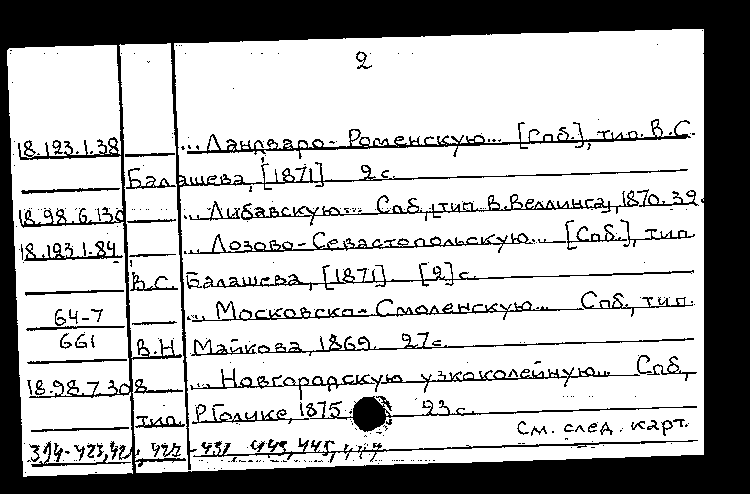 2
18.123.1.38 ... Ландваро-Роменскую... [Спб.], тип. В.С.
Балашева, [1871] 2 с.
18.98.6.130 ... Либавскую... Спб., тип. В. Веллинга, 1870. 39.
18.123.1.84 ... Лозово-Севастопольскую... [Спб.], тип.
В.С. Балашева, [1871]. [2] с.
64-7 ... Московско-Смоленскую... Спб., тип.
661 В.Н. Майкова, 1869. 27 с.
18.98.7.308 ... Новгородскую узкоколейную... Спб.,
тип. Р. Голике, 1875 23 с.
См. след. карт.